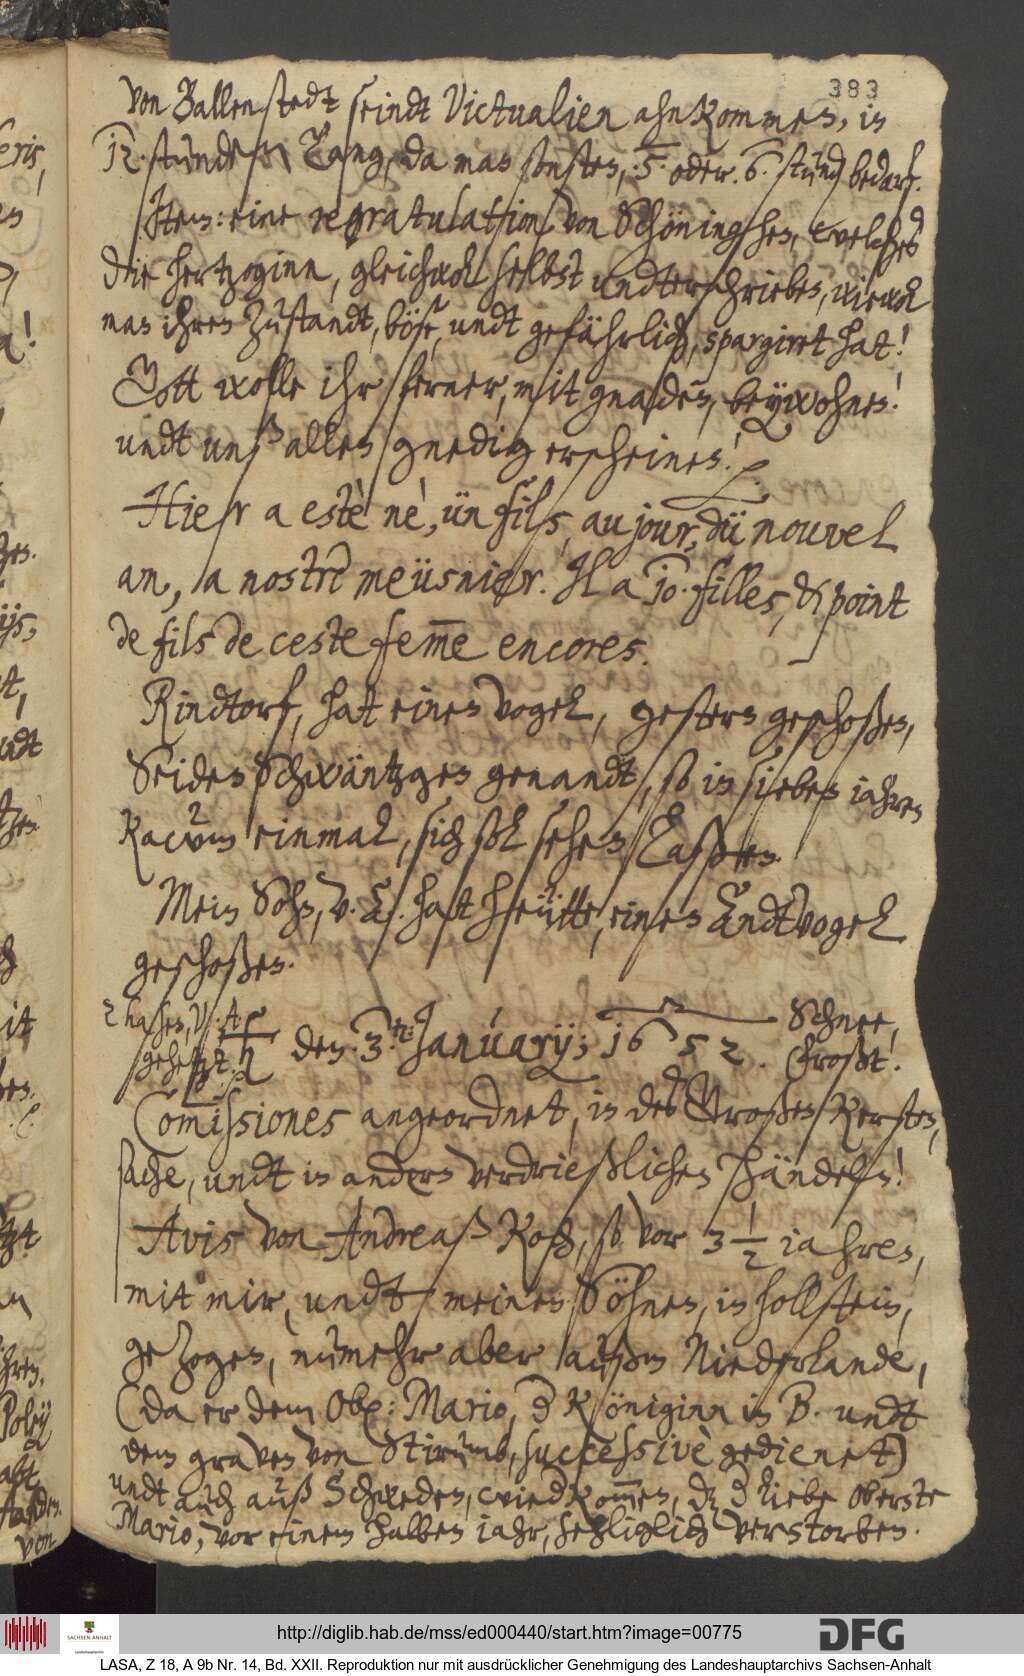 383
von Ballenstedt seindt Victualien ahnkommen, in
12. stunden Lang, da man sonsten, 5. oder. 6. stundt bedarf.
Item: eine regratulation von Schöninghen, welches
die hertzoginn, gleichwol selbst undterschrieben, wiewol
man ihren zustandt, böse, undt gefährlich, spargiret hat!
Gott wolle ihr ferner, mit gnaden, beÿwohnen!
undt unß allen gnedig erscheinen!
Hier a estè nè, ün fils, au jour, dü nouvel
an, a nostre meüsnier. Il a 10. filles, & point
de fils de ceste fem̅e encores.
Rindtorf, hat einen vogel, gestern geschoßen,
Seidenschwäntzgen genandt, so in sieben iahren
kaum einmal, sich sol sehen Laßen.
Mein Sohn, V. A. hat heütte, einen Endtvogel
geschoßen.
2 hasen, V. A.
gehetzt.
♄ den 3.ten: January; 1652.
Schnee,
frost.
Com̅issiones angeordnet, in des Großen Kersten,
sache, undt in andern verdrießlichen händeln!
Avis von Andreaß Koch, so vor 3 1/2 iahren,
mit mir, undt meinen Söhnen, in hollstein,
gezogen, nùmehr aber außm Niederlande,
(da er dem Obr: Mario, d Königinn in B. undt
dem graven von Stirumb, successivè gedienet)
undt auch auß Schweden, wiedkom̅en, dz d liebe Oberste
Mario, vor einem halben iahr, sehliglich verstorben.
http://diglib.hab.de/mss/ed000440/start.htm?image=00775
SACHSEN-ANHALT
DFG
LASA, Z 18, A 9b Nr. 14, Bd. XXII. Reproduktion nur mit ausdrücklicher Genehmigung des Landeshauptarchivs Sachsen-Anhalt